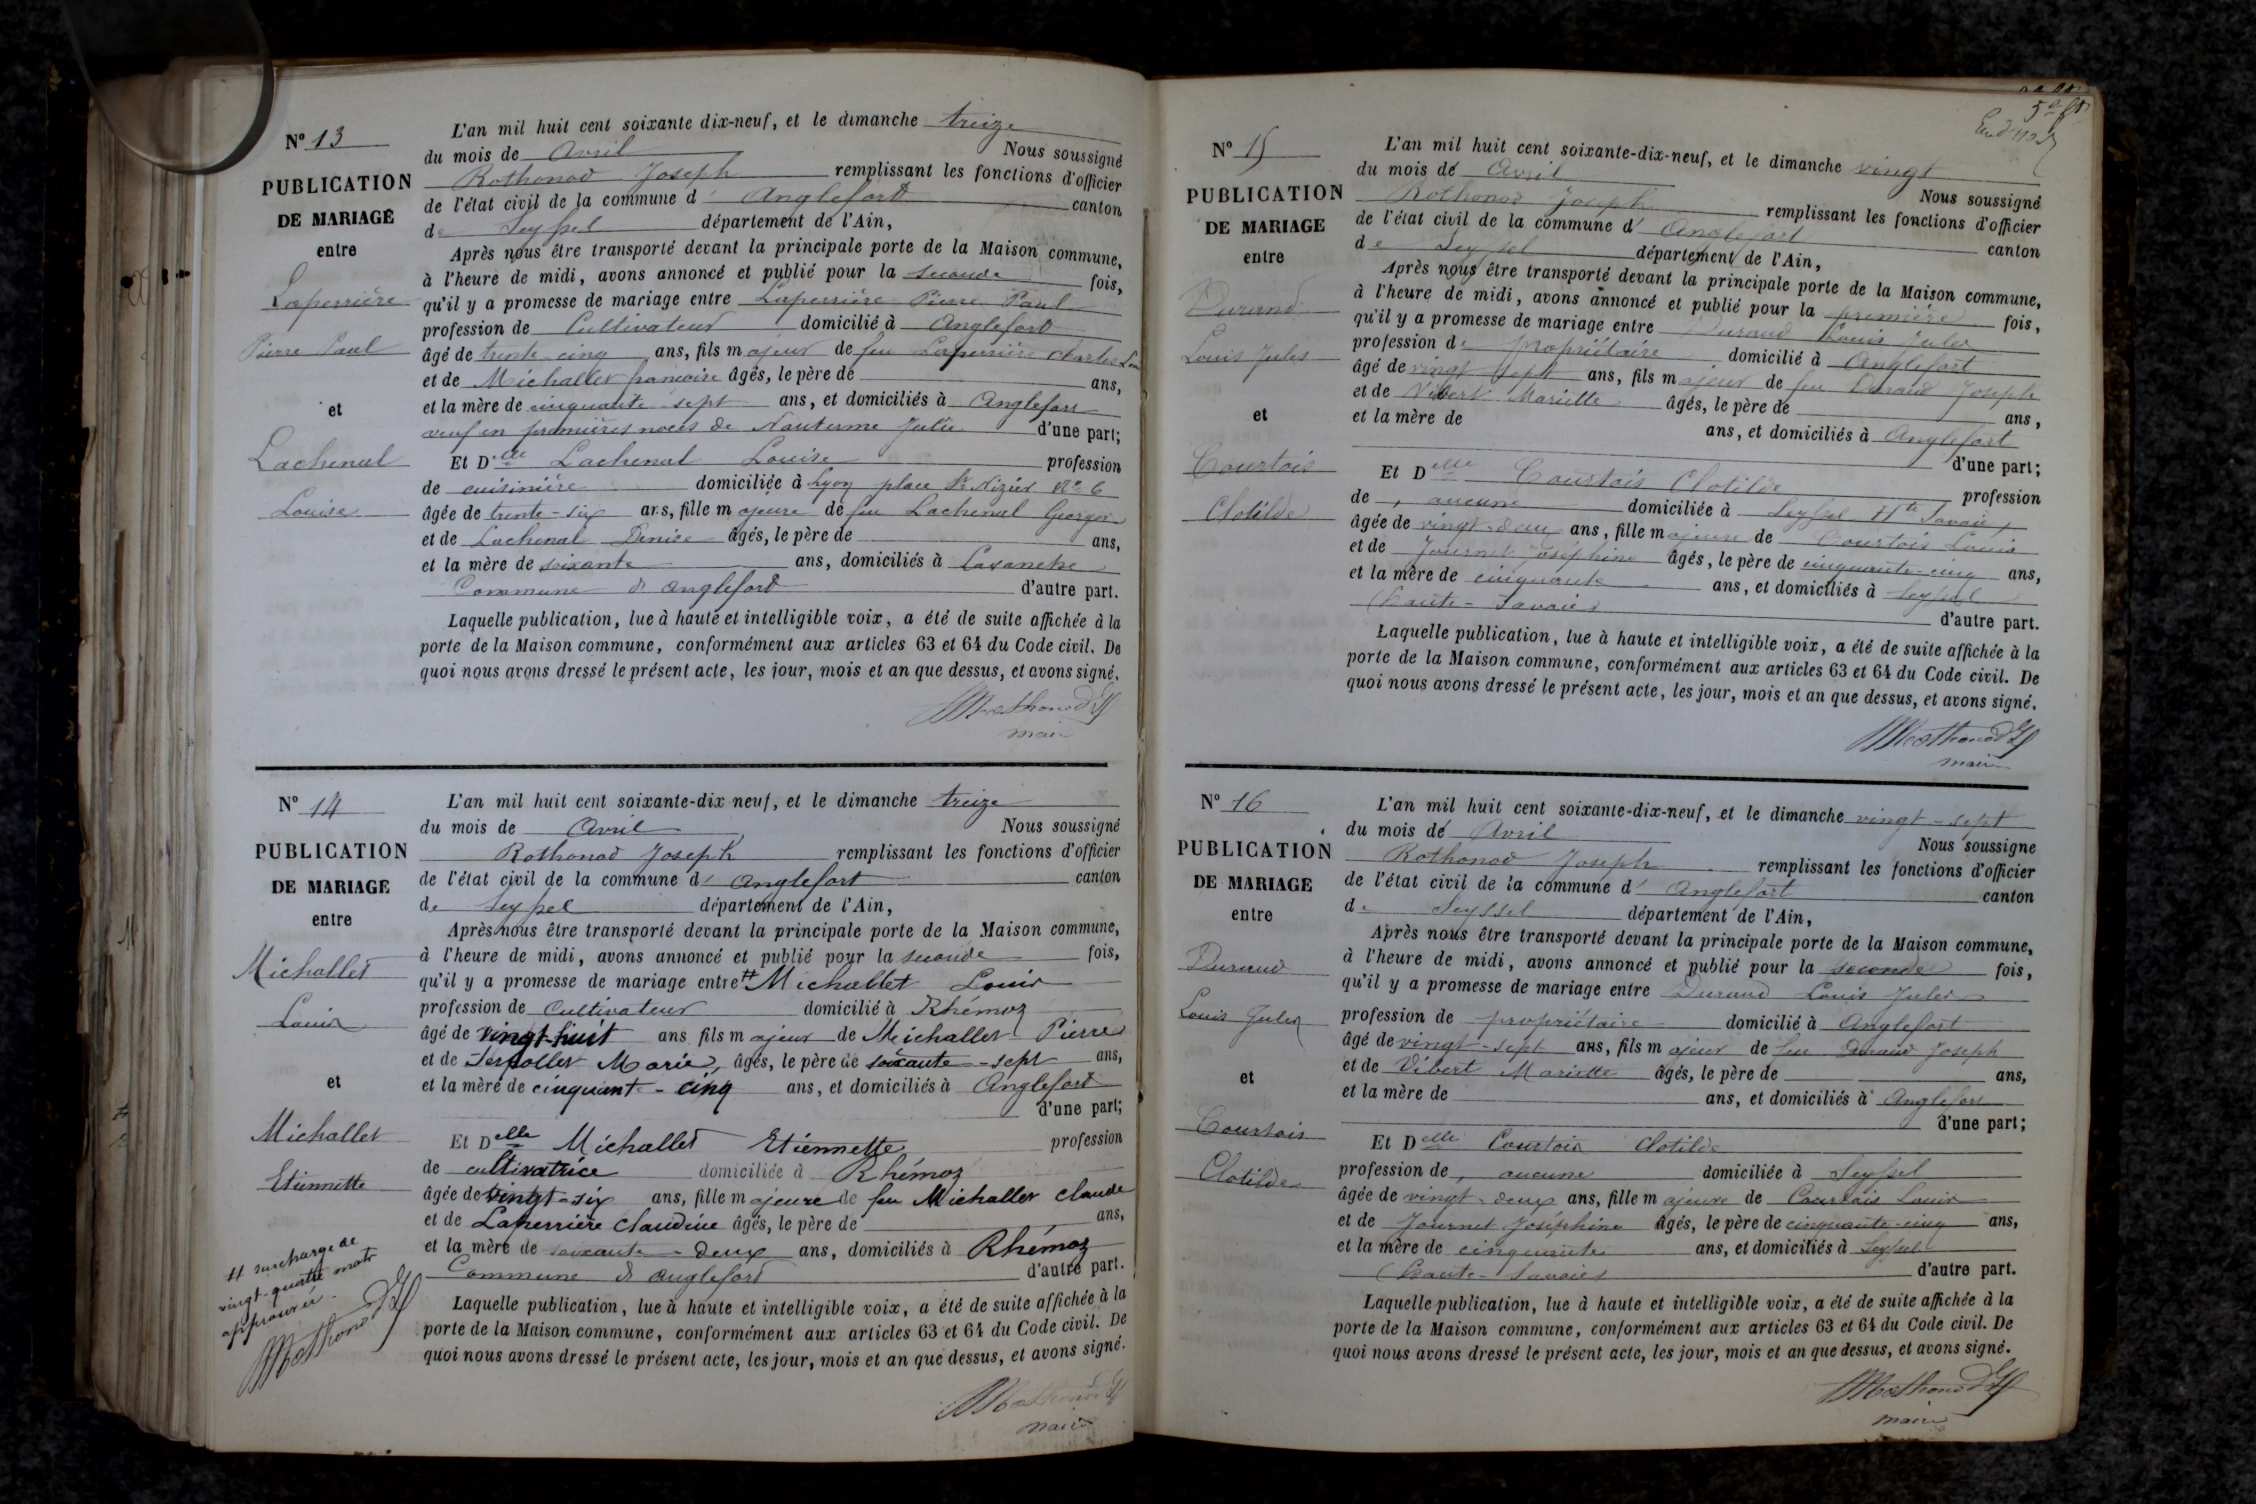 N° 13
PUBLICATION
DE MARIAGE
entre
Laperrière
Pierre Paul
et
Lachenal
Louise
L'an mil huit cent soixante dix-neuf, et le dimanche treize
du mois de Avril Nous soussigné
Rothonod Joseph remplissant les fonctions d'officier
de l'état civil de la commune d' Anglefort canton
de Seyssel département de l'Ain,
Après nous être transporté devant la principale porte de la Maison commune,
à l'heure de midi, avons annoncé et publié pour la seconde fois,
qu'il y a promesse de mariage entre Laperrière Pierre Paul
profession de Cultivateur domicilié à Anglefort
âgé de trente cinq ans, fils majeur de feu Laperrière Charles
et de Michallet françoise âgés, le père de ans,
et la mère de cinquante-sept ans, et domiciliés à Anglefort
veuf en premières noces de Julie d'une part;
Et Delle Lachenal Louise profession
de cuisinière domiciliée à Lyon place St Nizier N° 6
âgée de trente-six ans, fille majeure de feu Lachenal
et de Lachenal Denise âgés, le père de ans,
et la mère de soixante ans, domiciliés à
Commune d'anglefort d'autre part.
Laquelle publication, lue à haute et intelligible voix, a été de suite affichée à la
porte de la Maison commune, conformément aux articles 63 et 64 du Code civil. De
quoi nous avons dressé le présent acte, les jour, mois et an que dessus, et avons signé.
Rothonod J
maire
N° 14
PUBLICATION
DE MARIAGE
entre
Michallet
Louis
et
Michallet
Etiennette
# surcharge de
vingt-quatre mots
approuvée.
Rothonod J
L'an mil huit cent soixante-dix neuf, et le dimanche treize
du mois de Avril Nous soussigné
Rothonod Joseph remplissant les fonctions d'officier
de l'état civil de la commune d' anglefort canton
de Seyssel département de l'Ain,
Après nous être transporté devant la principale porte de la Maison commune,
à l'heure de midi, avons annoncé et publié pour la seconde fois,
qu'il y a promesse de mariage entre # Michallet Louis
profession de Cultivateur domicilié à Rhémoz
âgé de vingt-huit ans fils majeur de Michallet Pierre
et de Serpollet Marie, âgés, le père de soixante-sept ans,
et la mère de cinquante-cinq ans, et domiciliés à Anglefort
d'une part;
Et Delle Michallet Etiennette profession
de cultivatrice domiciliée à Rhémoz
âgée de vingt-six ans, fille majeure de feu Michallet claude
et de Laperrière claudine âgés, le père de ans,
et la mère de soixante-deux ans, domiciliés à Rhémoz
Commune d'anglefort d'autre part.
Laquelle publication, lue à haute et intelligible voix, a été de suite affichée à la
porte de la Maison commune, conformément aux articles 63 et 64 du Code civil. De
quoi nous avons dressé le présent acte, les jour, mois et an que dessus, et avons signé.
Rothonod J
maire
N° 15
PUBLICATION
DE MARIAGE
entre
Durand
Louis Jules
et
Courtois
Clotilde
L'an mil huit cent soixante-dix-neuf, et le dimanche vingt
du mois de Avril Nous soussigné
Rothonod Joseph remplissant les fonctions d'officier
de l'état civil de la commune d' Anglefort canton
de Seyssel département de l'Ain,
Après nous être transporté devant la principale porte de la Maison commune,
à l'heure de midi, avons annoncé et publié pour la première fois,
qu'il y a promesse de mariage entre Durand Louis Jules
profession de propriétaire domicilié à Anglefort
âgé de vingt sept ans, fils majeur de feu Durand Joseph
et de Vibert Mariette âgés, le père de ans,
et la mère de ans, et domiciliés à Anglefort
d'une part;
Et Delle Courtois Clotilde profession
de, aucune domiciliée à Seyssel Hte Savoie,
âgée de vingt-deux ans, fille majeure de Courtois Louis
et de Journet Joséphine âgés, le père de cinquante-cinq ans,
et la mère de cinquante ans, et domiciliés à Seyssel
(haute-Savoie) d'autre part.
Laquelle publication, lue à haute et intelligible voix, a été de suite affichée à la
porte de la Maison commune, conformément aux articles 63 et 64 du Code civil. De
quoi nous avons dressé le présent acte, les jour, mois et an que dessus, et avons signé.
Rothonod J
maire
N° 16
PUBLICATION
DE MARIAGE
entre
Durand
Louis Jules
et
Courtois
Clotilde
L'an mil huit cent soixante-dix-neuf, et le dimanche vingt-sept
du mois de Avril Nous soussigné
Rothonod Joseph remplissant les fonctions d'officier
de l'état civil de la commune d' Anglefort canton
de Seyssel département de l'Ain,
Après nous être transporté devant la principale porte de la Maison commune,
à l'heure de midi, avons annoncé et publié pour la seconde fois,
qu'il y a promesse de mariage entre Durand Louis Jules
profession de propriétaire domicilié à Anglefort
âgé de vingt-sept ans, fils majeur de feu Durand Joseph
et de Vibert Mariette âgés, le père de ans,
et la mère de ans, et domiciliés à Anglefort
d'une part;
Et Delle Courtois Clotilde
profession de, aucune domiciliée à Seyssel
âgée de vingt-deux ans, fille majeure de Courtois Louis
et de Journet Joséphine âgés, le père de cinquante-cinq ans,
et la mère de cinquante ans, et domiciliés à Seyssel
(haute-Savoie) d'autre part.
Laquelle publication, lue à haute et intelligible voix, a été de suite affichée à la
porte de la Maison commune, conformément aux articles 63 et 64 du Code civil. De
quoi nous avons dressé le présent acte, les jour, mois et an que dessus, et avons signé.
Rothonod J
maire